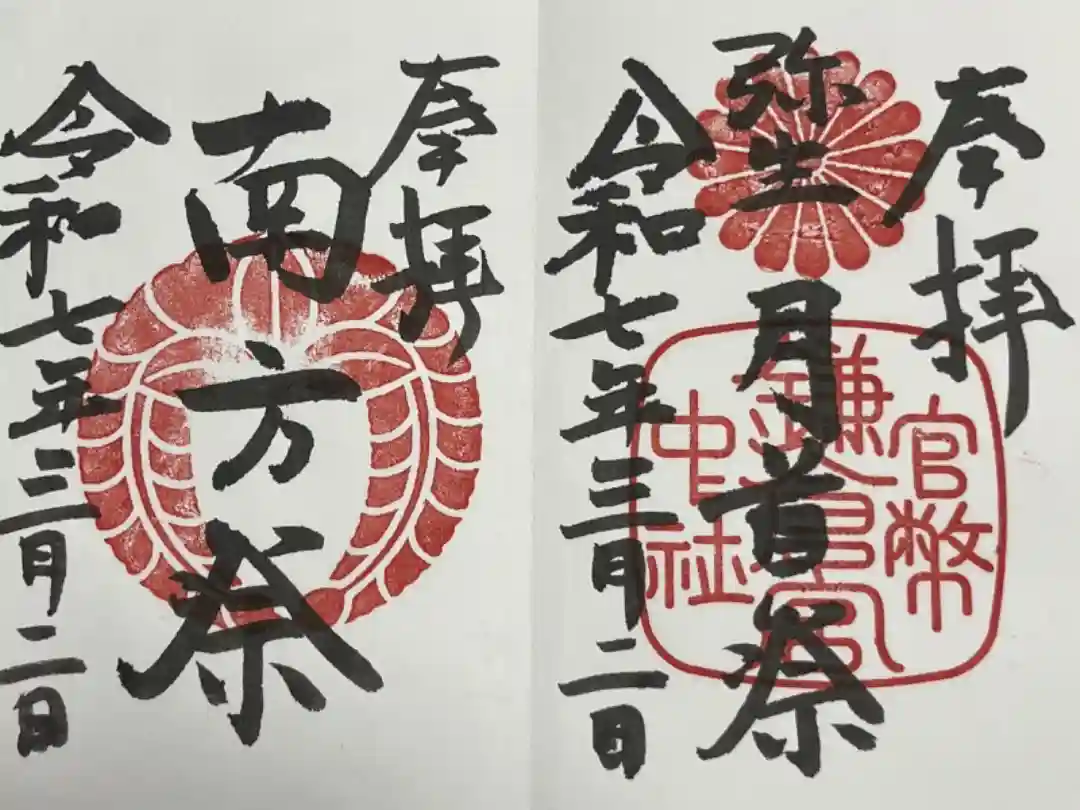 奉拝
弥生月首祭
令和七年三月二日
官幣
鎌倉宮
中社
奉拝
南方祭
令和七年三月二日